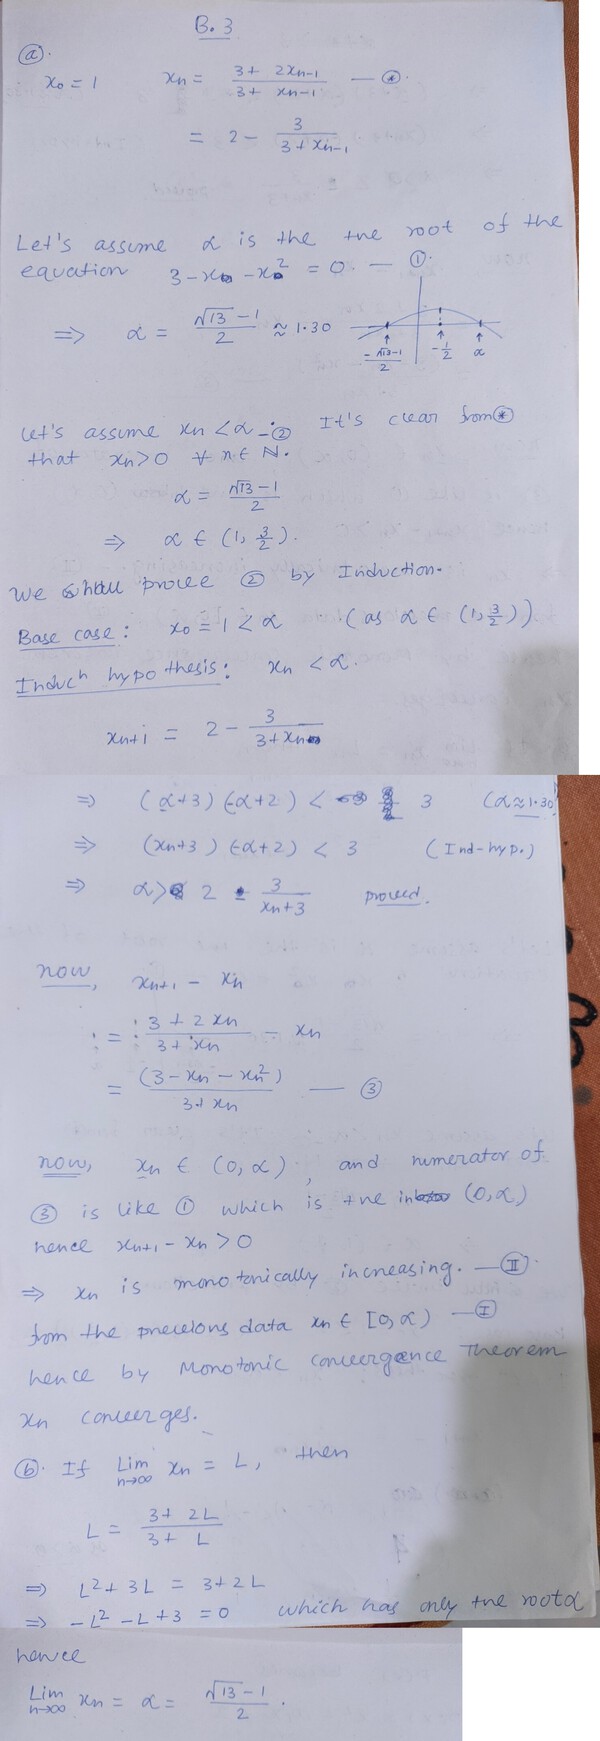 B.3
(a).
x₀ = 1    xₙ = (3 + 2xₙ₋₁)/(3 + xₙ₋₁) — (*).
= 2 - 3/(3 + xₙ₋₁).
Let's assume α is the +ve root of the
equation 3 - x - x² = 0. — (1).
⇒ α = (√13 - 1)/2 ≈ 1.30
(-√13-1)/2    -1/2    α
Let's assume xₙ < α — (2) It's clear from (*)
that xₙ > 0 ∀ n ∈ N.
α = (√13 - 1)/2
⇒ α ∈ (1, 3/2).
We shall prove (2) by Induction.
Base case: x₀ = 1 < α (as α ∈ (1, 3/2))
Induch hypothesis: xₙ < α.
xₙ₊₁ = 2 - 3/(3 + xₙ)
⇒ (α+3) (-α+2) < 3 (α ≈ 1.30)
⇒ (xₙ+3) (-α+2) < 3 (Ind-hyp.)
⇒ α > 2 - 3/(xₙ+3) proved.
now, xₙ₊₁ - xₙ
= (3 + 2xₙ)/(3 + xₙ) - xₙ
= (3 - xₙ - xₙ²)/(3 + xₙ) — (3)
now, xₙ ∈ (0, α), and numerator of
(3) is like (1) which is +ve in (0, α)
hence xₙ₊₁ - xₙ > 0
⇒ xₙ is monotonically increasing. — (II).
from the precious data xₙ ∈ [0, α) — (I)
hence by Monotonic convergence Theorem
xₙ converges.
(b). If Lim n→∞ xₙ = L, then
L = (3 + 2L)/(3 + L)
⇒ L² + 3L = 3 + 2L
⇒ -L² - L + 3 = 0 which has only +ve root α
hence
Lim n→∞ xₙ = α = (√13 - 1)/2.